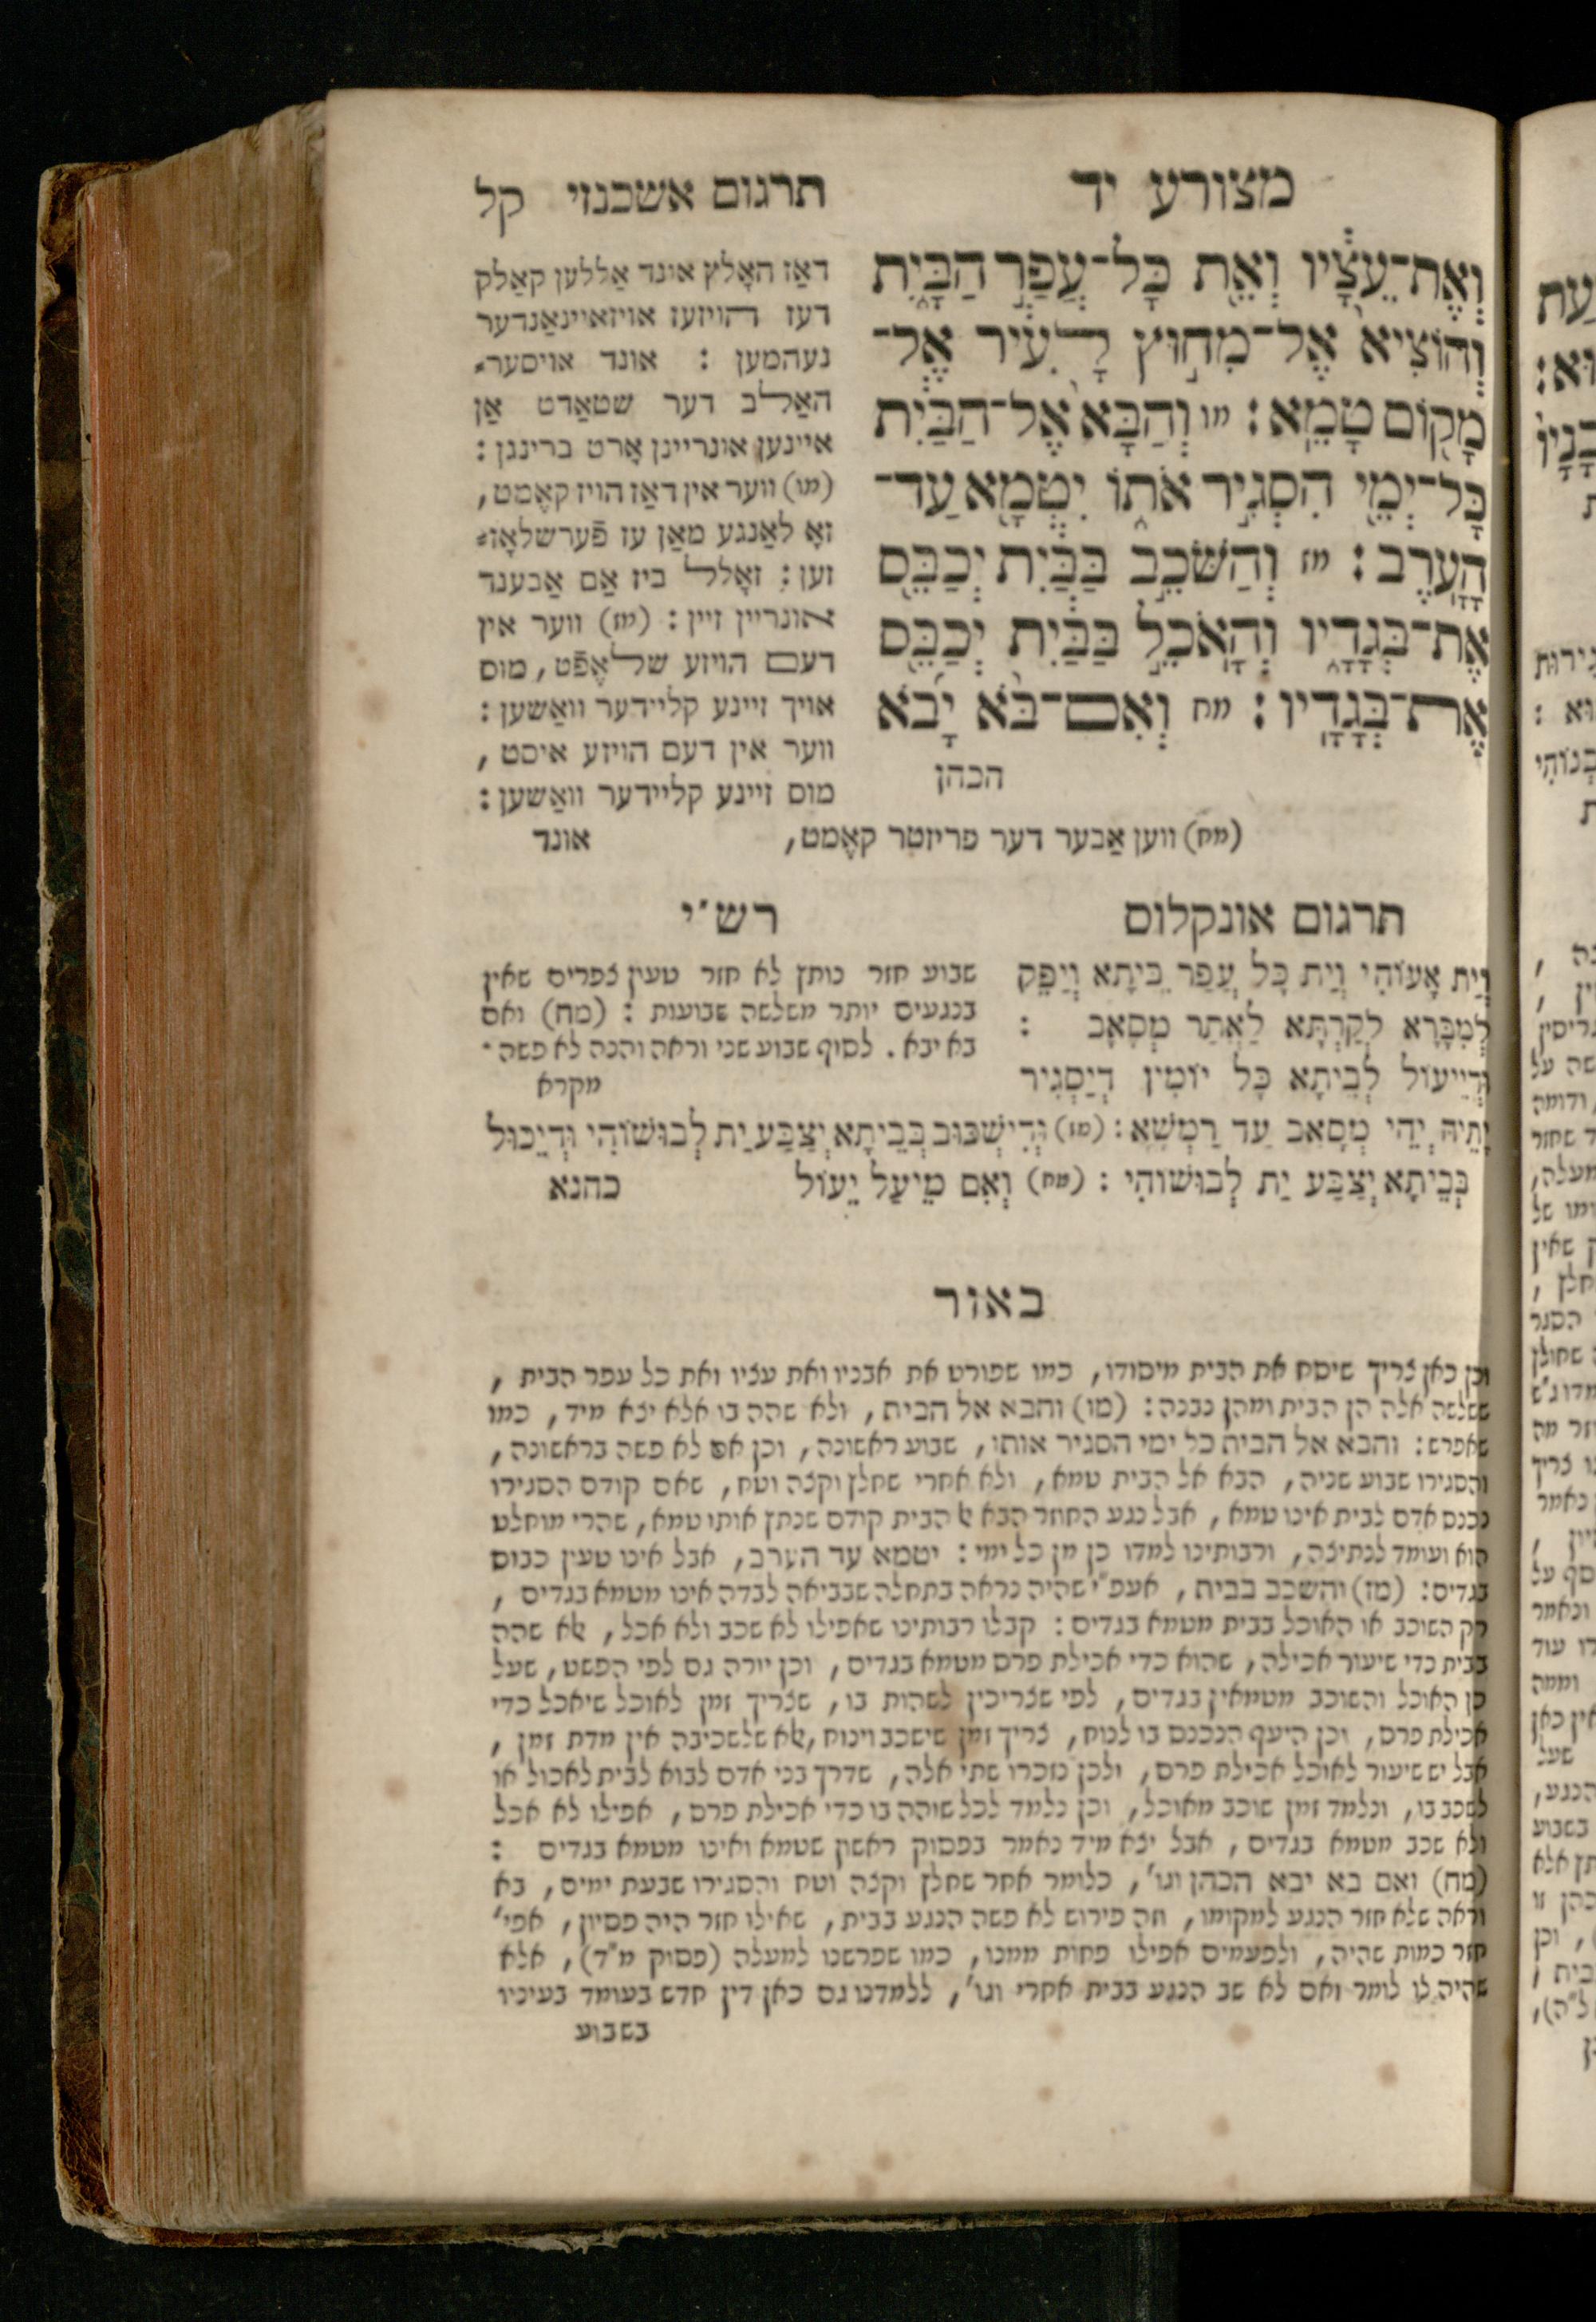 מצורע יד
תרגום אשכנזי קל
וְאֶת־עֵצָ֔יו וְאֵ֖ת כָּל־עֲפַ֣ר הַבָּ֑יִת
וְהוֹצִיא֙ אֶל־מִח֣וּץ לָעִ֔יר אֶל־
מָק֖וֹם טָמֵֽא: מו וְהַבָּא֙ אֶל־הַבַּ֔יִת
כָּל־יְמֵ֖י הִסְגִּ֣יר אֹת֑וֹ יִטְמָ֖א עַד־
הָעָֽרֶב: מז וְהַשֹּׁכֵ֣ב בַּבַּ֔יִת יְכַבֵּ֖ס
אֶת־בְּגָדָ֑יו וְהָאֹכֵ֣ל בַּבַּ֔יִת יְכַבֵּ֖ס
אֶת־בְּגָדָֽיו: מח וְאִם־בֹּ֨א יָבֹ֜א
הכהן
דאַז האָלץ אונד אַללען קאַלק
דעז הויזעז אויזאיינאַנדער
נעהמען : אונד אויסער־
האַלב דער שטאַדט אַן
איינען אונריינן אָרט ברינגן :
(מו) ווער אין דאַז הויז קאָמט,
זאָ לאַנגע מאַן עז פֿערשלאָז־
זען: זאָלל ביז אַם אַבענד
אונריין זיין : (מז) ווער אין
דעם הויזע שלאֶפֿט, מוס
אויך זיינע קליידער וואַשען :
ווער אין דעם הויזע איסט ,
מוס זיינע קליידער וואַשען :
(מח) ווען אַבער דער פריזטר קאָמט, אונד
תרגום אונקלוס
וְיַת אָעוֹהִי וְיַת כָּל עֲפַר בֵּיתָא וְיַפֵּק
לְמִבָּרָא לְקַרְתָּא לַאֲתַר מְסָאָב :
וּדְיֵיעוֹל לְבֵיתָא כָּל יוֹמִין דְיַסְגִּיר
יָתֵיהּ יְהֵי מְסָאב עַד רַמְשָׁא : (מז) וּדְיִשְׁכּוּב בְּבֵיתָא יְצַבַּע יַת לְבוּשׁוֹהִי וּדְיֵכוּל
בְּבֵיתָא יְצַבַּע יַת לְבוּשׁוֹהִי : (מח) וְאִם מֵיעַל יֵעוֹל כהנא
רש״י
שבוע חזר נותץ לא חזר טעון צפרים שאין
בנגעים יותר משלשה שבועות : (מח) ואם
בא יבא . לסוף שבוע שני וראה והנה לא פשה ־
מקרא
באור
וכן כאן צריך שיסח את הבית מיסודו, כמו שפורט את אבניו ואת עציו ואת כל עפר הבית ,
ששלשה אלה הן הבית ומהן נבנה: (מו) והבא אל הבית, ולא שהה בו אלא יצא מיד, כמו
שאפרש: והבא אל הבית כל ימי הסגיר אותו, שבוע ראשונה, וכן אם לא פשה בראשונה,
והסגירו שבוע שניה, הבא אל הבית טמא, ולא אחרי שחלץ וקצה וטח, שאם קודם הסגירו
נכנס אדם לבית אינו טמא, אבל נגע החוזר הבא אל הבית קודם שנתץ אותו טמא, שהרי מוחלט
הוא ועומד לנתיצה, ורבותינו למדו כן מן כל ימי: יטמא עד הערב, אבל אינו טעין כבוס
בגדים: (מז) והשכב בבית, אעפ״י שהיה נראה בתחלה שבביאה לבדה אינו מטמא בגדים ,
רק השוכב או האוכל בבית מטמא בגדים: קבלו רבותינו שאפילו לא שכב ולא אכל, אלא שהה
בבית כדי שיעור אכילה, שהוא כדי אכילת פרס מטמא בגדים, וכן יורה גם לפי הפשט, שעל
כן האוכל והשוכב מטמאין בגדים, לפי שצריכין לשהות בו, שצריך זמן לאוכל שיאכל כדי
אכילת פרס, וכן היעף הנכנס בו לנוח, צריך זמן שישכב וינוח, אלא שלשכיבה אין מדת זמן ,
אבל יש שיעור לאוכל אכילת פרס, ולכן נזכרו שתי אלה, שדרך בני אדם לבוא לבית לאכול או
לשכב בו, ונלמד זמן שוכב מאוכל, וכן נלמד לכל שוהה בו כדי אכילת פרס, אפילו לא אכל
ולא שכב מטמא בגדים, אבל יצא מיד נאמר בפסוק ראשון שטמא ואינו מטמא בגדים :
(מח) ואם בא יבא הכהן וגו׳, כלומר אחר שחלץ וקצה וטח והסגירו שבעת ימים, בא
וראה שלא חזר הנגע למקומו, וזה פירוש לא פשה הנגע בבית, שאילו חזר היה פסיון, אפי׳
חזר כמות שהיה, ולפעמים אפילו פחות ממנו, כמו שפרשנו למעלה (פסוק מ״ד), אלא
שהיה לו לומר ואם לא שב הנגע בבית אחרי וגו׳, ללמדנו גם כאן דין חדש בעומד בעיניו
בשבוע